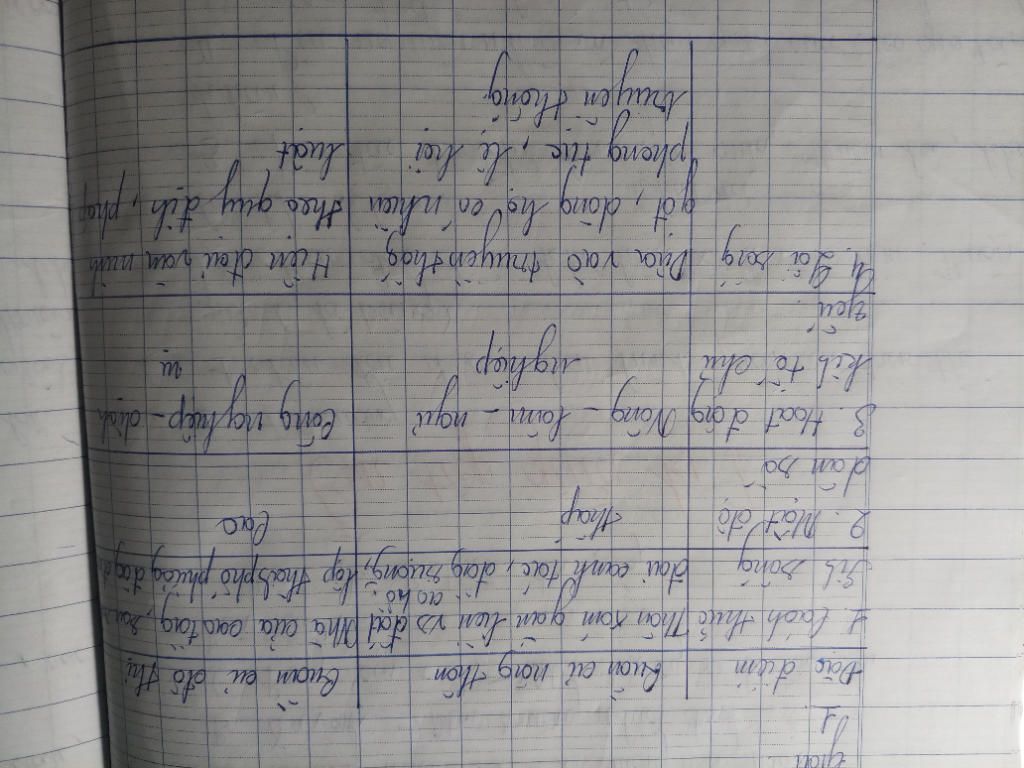 gian
Đặc điểm | Quần cư nông thôn | Quần cư đô thị
1. Cách thức | Thôn xóm gắn liền vs đất | Nhà cửa cao tầng,
sih sống | đai canh tác, đồg ruộng, | tập thàh phố phườg
ao hồ
2. Mật độ | thấp | Cao
dân số
3. Hoạt động | Nông - lâm - ngư | Công nghiệp - dịch
kih tế chủ | nghiệp | vụ
yếu
4. Lối sống | Dựa vào truyền thốg | Hiện đại văn minh
gđ, dòng họ có nhiều | theo quy địh, pháp
phong tục, lễ hội | luật
truyền thống